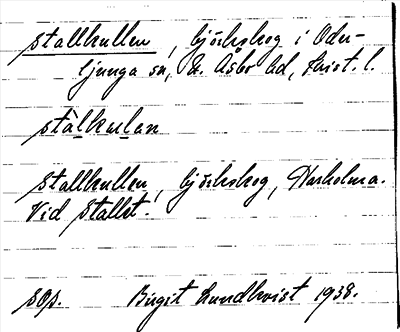 Stallkullen, björkskog i Oder-
ljunga sn, N. Åsbo hd, Krist. l.
stàlkulan
Stallkullen, björkskog, Harholma.
Vid Stallet.
sop. Birgit Lundkvist 1938.